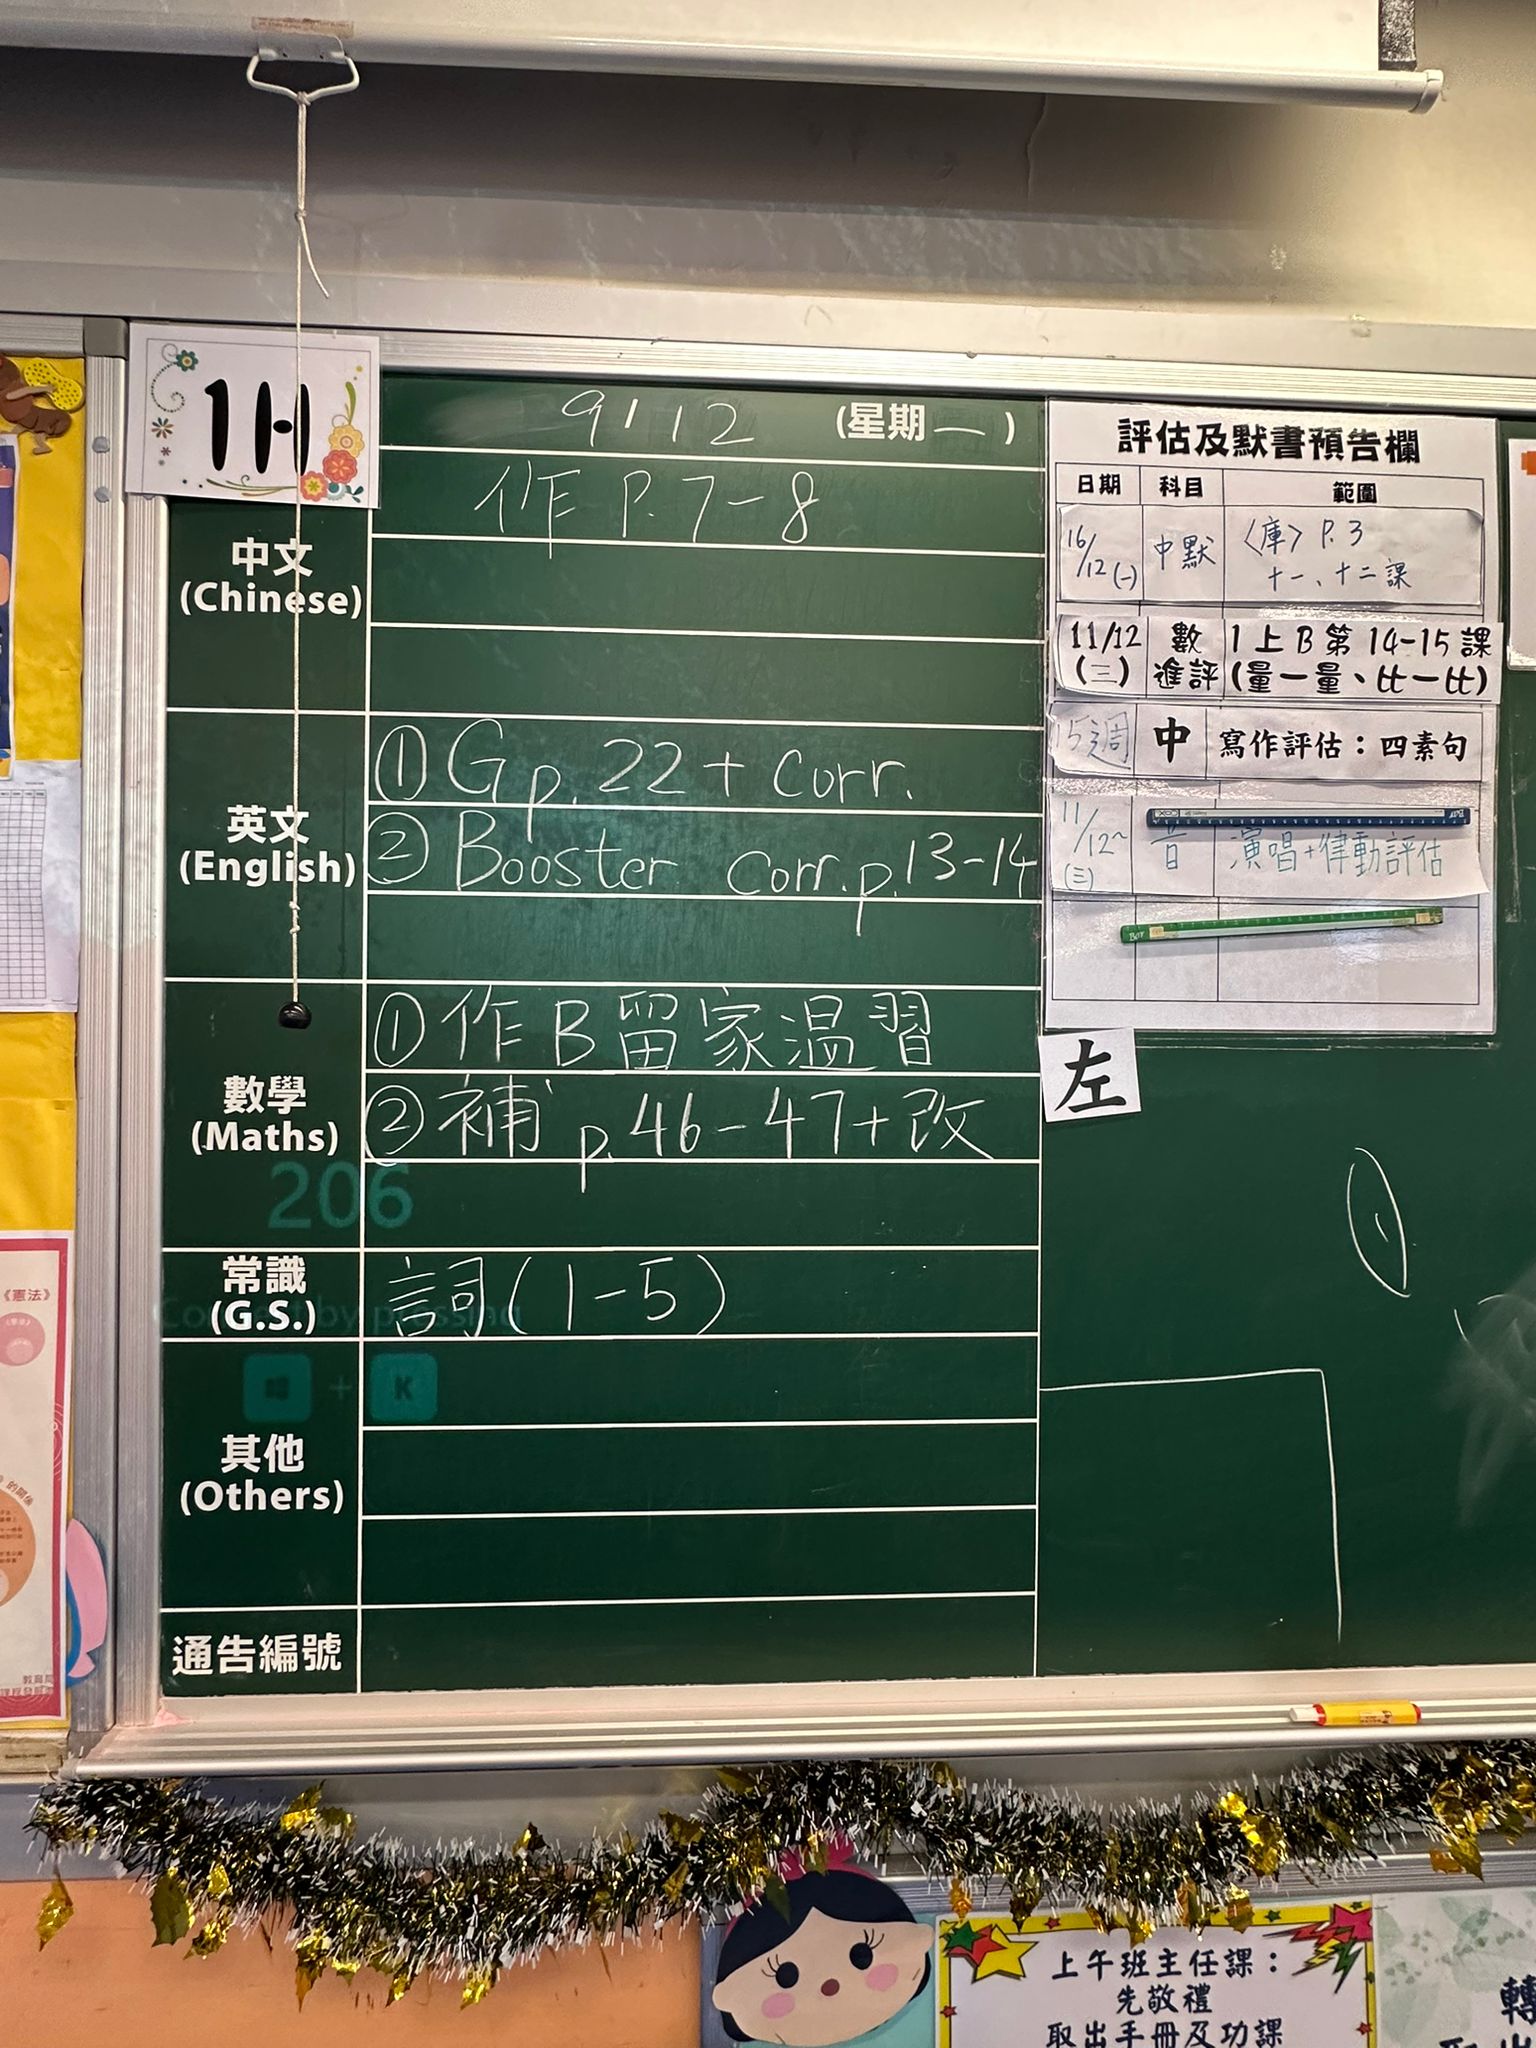 1H
9/12 (星期一)
中文
(Chinese)
作 P.7-8
英文
(English)
① G p.22 + corr.
② Booster corr. p.13-14
數學
(Maths)
① 作B留家溫習
② 補 p.46-47+改
206
常識
(G.S.)
詞(1-5)
Connect by pressing
+ K
其他
(Others)
通告編號
評估及默書預告欄
日期 科目 範圍
16/12(一) 中默 〈庫〉P.3
十一、十二課
11/12 數 1上B第14-15課
(三) 進評 (量一量、比一比)
15週 中 寫作評估：四素句
11/12~ 音 演唱+律動評估
(三)
左
《憲法》
的關係
教育局
上午班主任課：
先敬禮
取出手冊及功課
轉